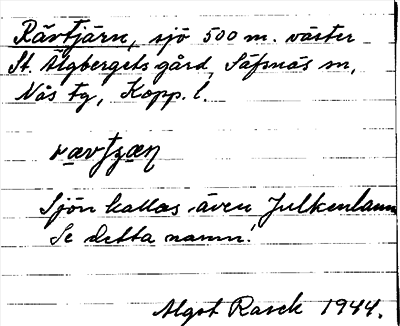 Rävtjärn, sjö 500 m. väster
St. Älgbergets gård, Säfsnäs sn,
Nås tg, Kopp. l.
Sjön kallas även Julkenlamm
Se detta namn!
Algot Rasck 1944.